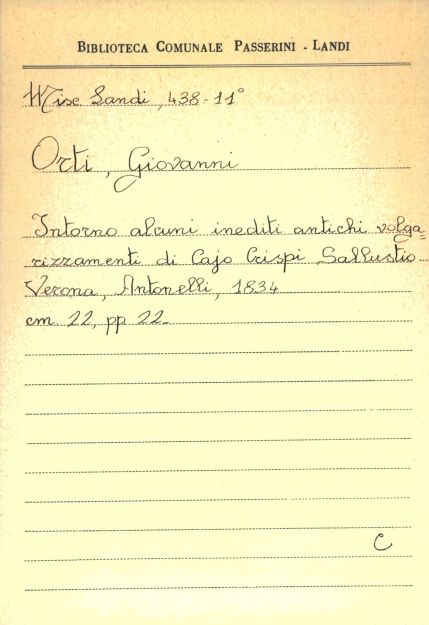 BIBLIOTECA COMUNALE PASSERINI - LANDI
Misc Landi, 438-11°
Orti, Giovanni
Intorno alcuni inediti antichi volga=
rizzamenti di Cajo Crispi Sallustio
Verona, Antonelli, 1834
cm. 22, pp 22
C